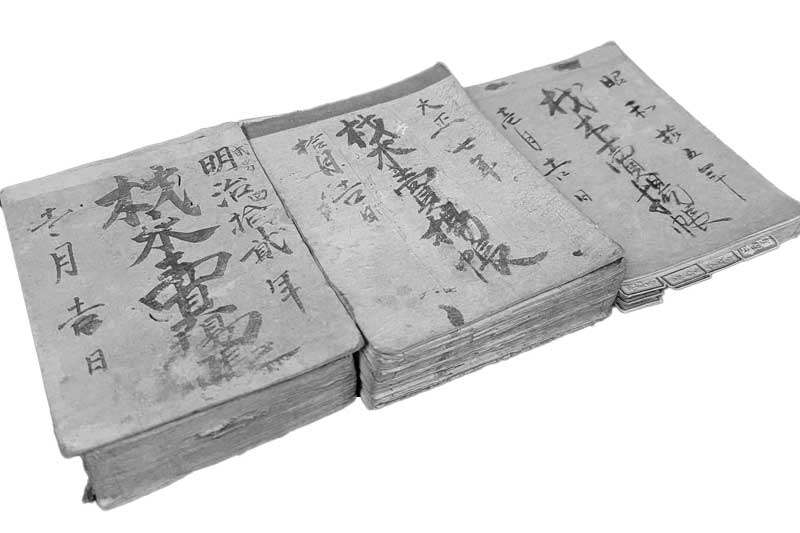 明治四拾貳年
材木賣揚帳
壱月吉日
大正七年
材木賣揚帳
拾月吉日
昭和拾五年
材木賣揚帳
壱月吉日